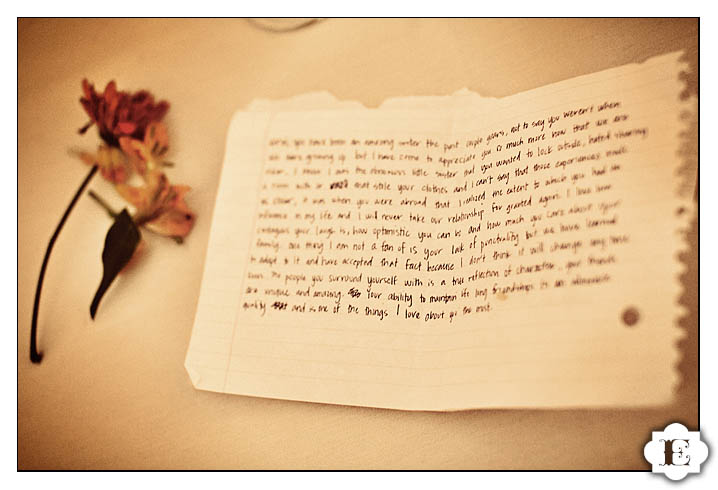 you have been an amazing sister the past couple years, not to say you weren't when
we were growing up but I have come to appreciate you so much more now that we are
older. I know I was the obnoxious little sister that you wanted to lock outside, hated sharing
a room with or that stole your clothes and I can't say that those experiences made
us closer, it was when you were abroad that I realized the extent to which you had an
influence in my life and I will never take our relationship for granted again. I love how
contagious your laugh is, how optimistic you can be and how much you care about your
family. One thing I am not a fan of is your lack of punctuality but we have learned
to adapt to it and have accepted that fact because I don't think it will change any time
soon. The people you surround yourself with is a true reflection of character, your friends
are unique and amazing. Your ability to maintain life long friendships is an admirable
quality and is one of the things I love about you the most.
E